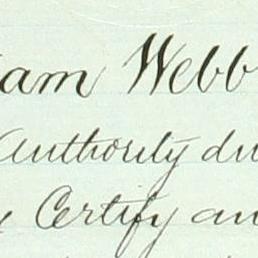 am Webb
Authority du
Certify an